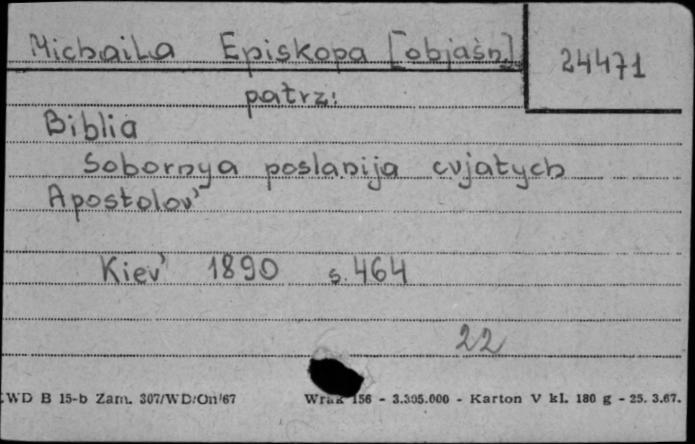 Michaila Episkopa [objaśn]
24471
patrz:
Biblia
Sobornya poslanija cvjatych
Apostolov'
Kiev' 1890 s. 464
22
WD B 15-b Zam. 307/WD/On/67 Wrak 156 - 3.305.000 - Karton V kl. 180 g - 25. 3.67.